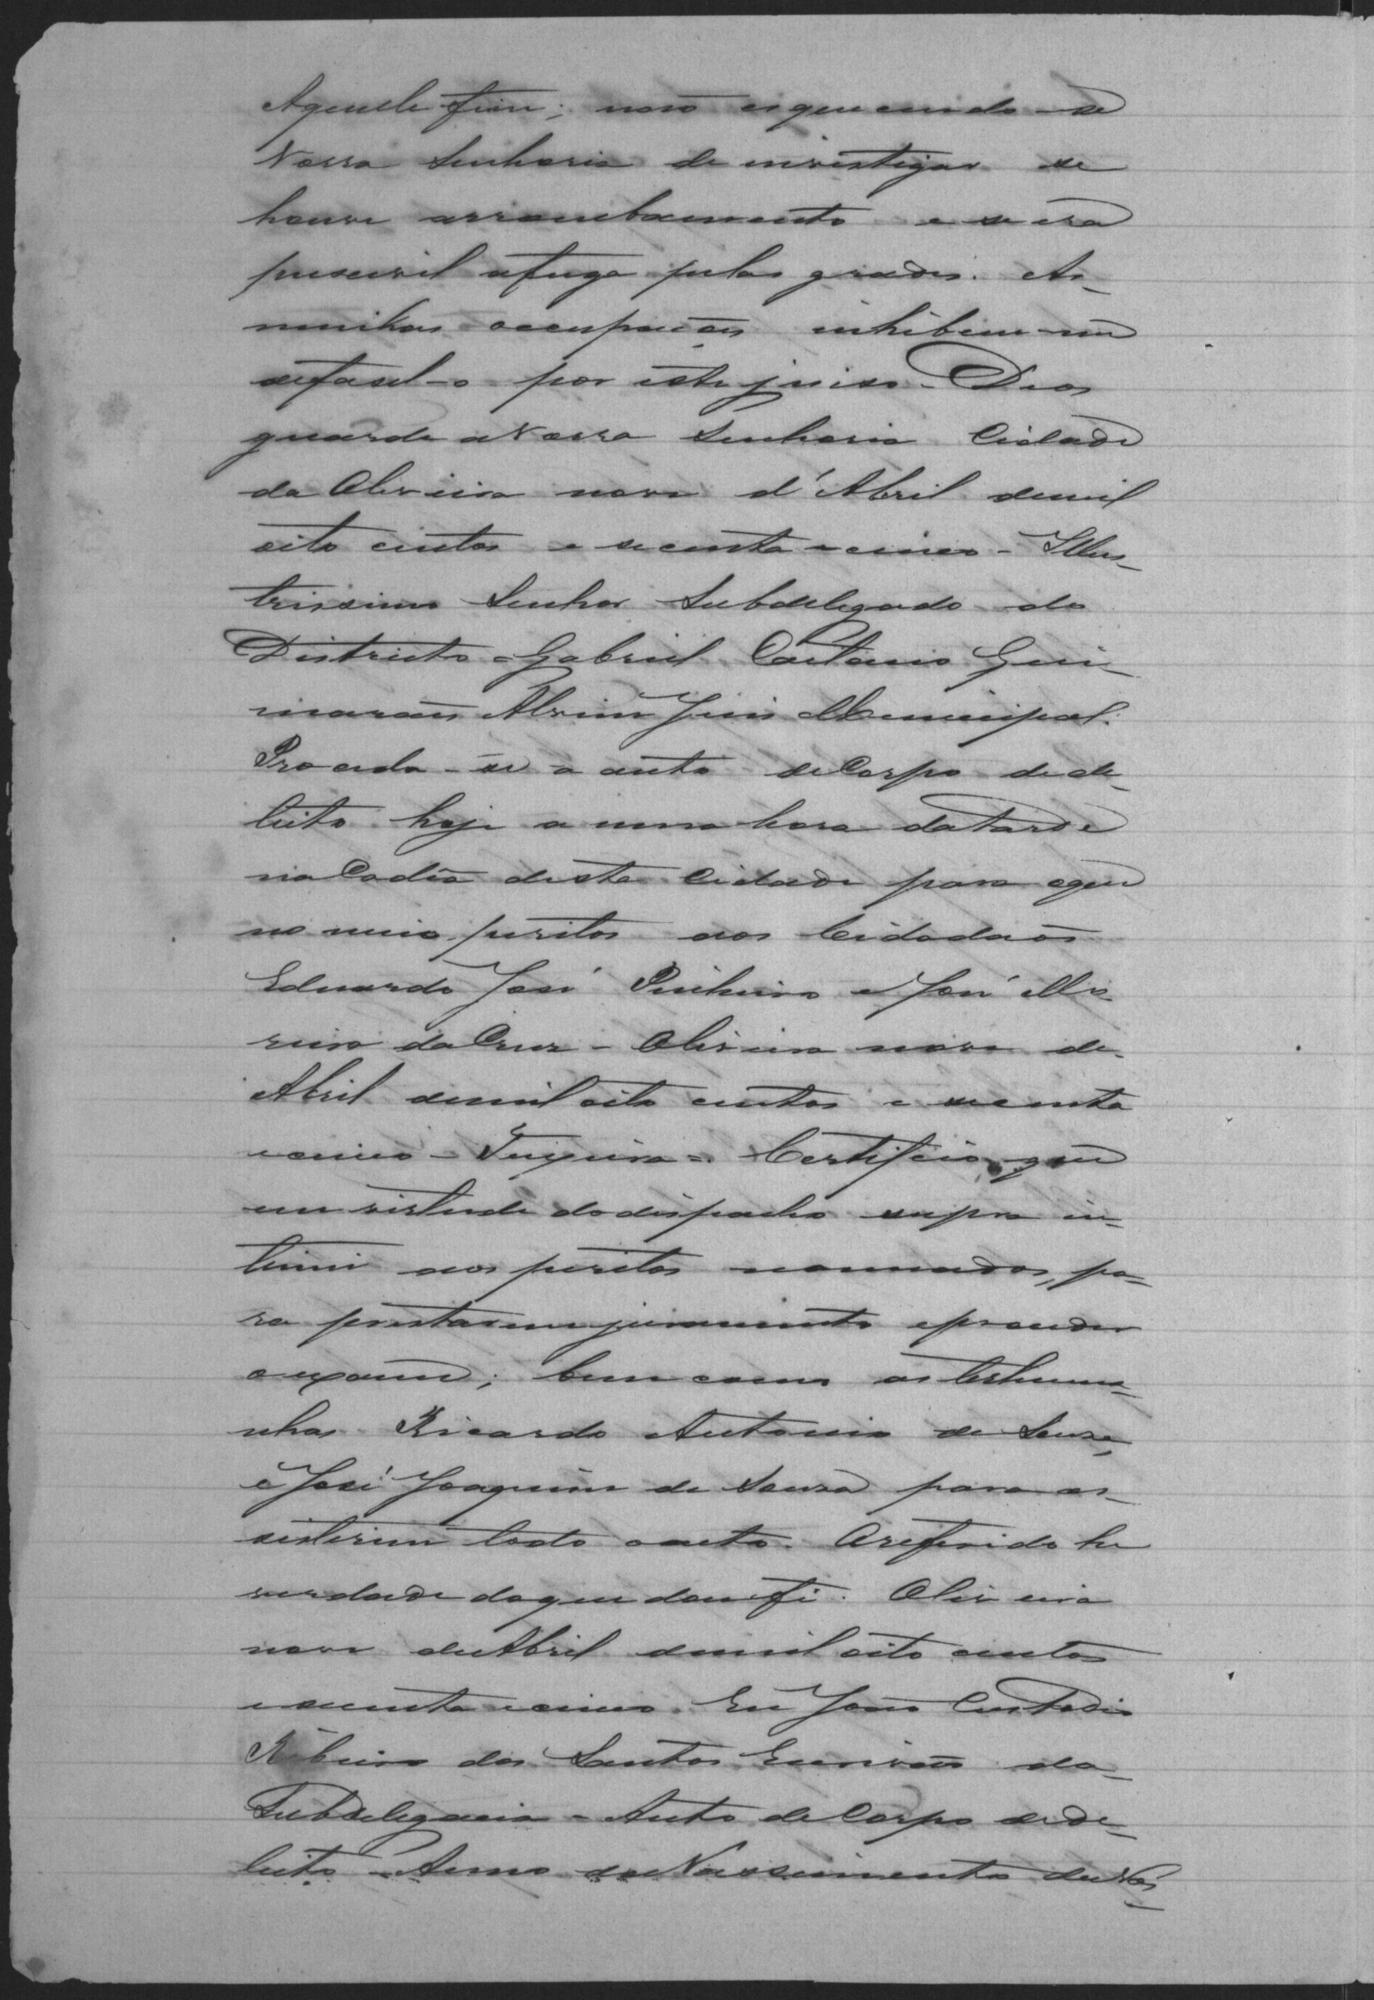 Aquelle fim; não esquecendo-se
Vossa Senhoria de investigar se
houve arrombamento e se era
pussivel afuga pelas grades. As
minhas occupacões inhibem-me
defasel-o por este juiso. Deos
guarde a Vossa Senhoria Cidade
da Oliveira nove d'Abril demil
oito centos e secenta e cinco - Illus-
trissimo Senhor Subdelegado do
Districto - Gabriel Caetano Gui-
marães Alvim Juis Municipal.
Proceda-se a auto de Corpo de de-
licto hoje a uma hora da tarde
na Cadêa desta Cidade para oque
nomeio peritos aos Cidadãos
Eduardo José Pinheiro e José Mo-
reira da Cruz - Oliveira nove de
Abril demil oito centos e secenta
e cinco - Teixeira = Certifico que
em virtude do despacho supra in-
timei aos peritos nomeados, pa-
ra prestarem juramento e proceder
o exame; bem como as testemu-
nhas Ricardo Antonio de Souza,
e José Joaquim de Souza para as-
sistirem todo o acto. O referido he
verdade do que dou fé. Oliveira
nove de Abril demil oito centos
e secenta e cinco. Eu João Custodio
Ribeiro dos Santos Escrivão da
Subdelegacia - Auto de Corpo de de-
licto - Anno do Nascimento de Nos-